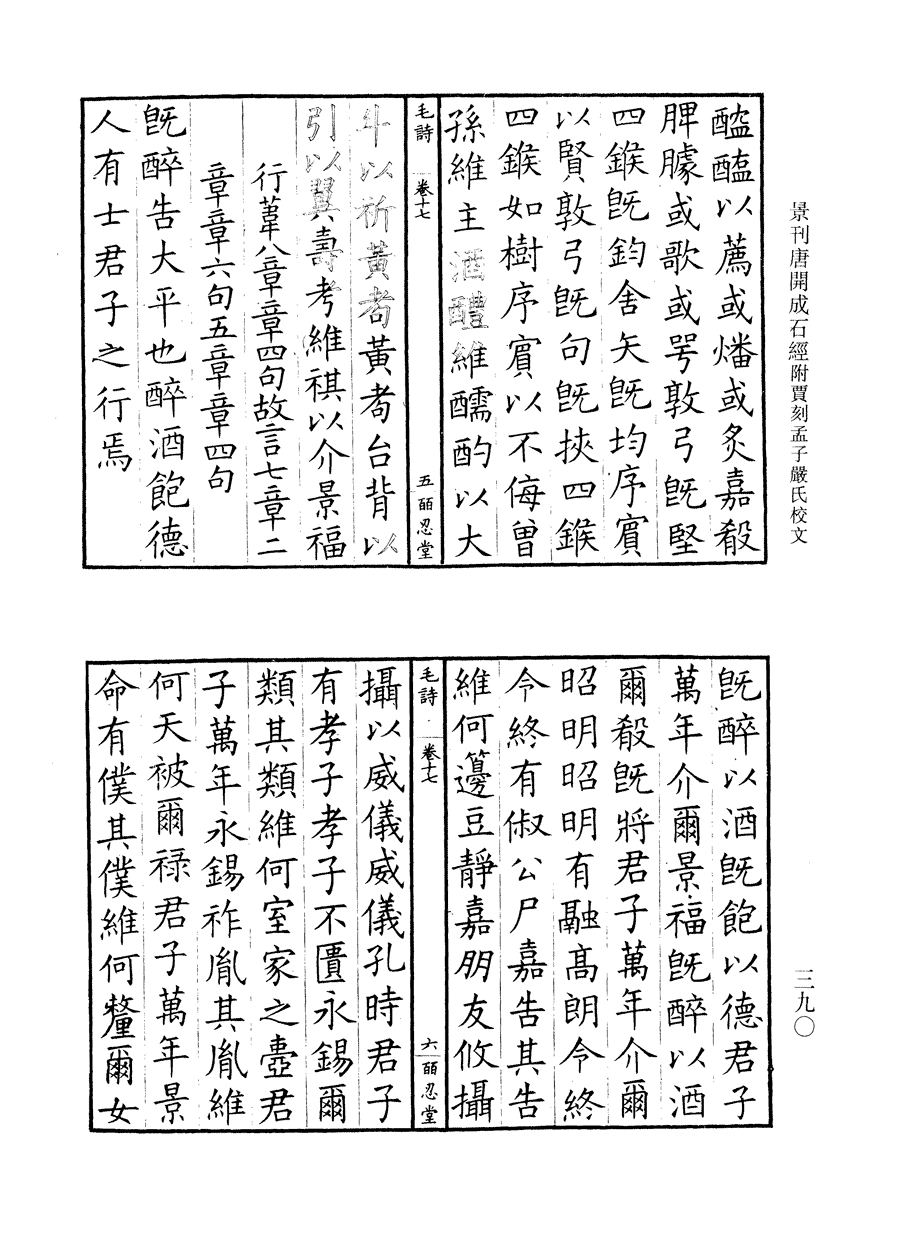 景刊唐開成石經附賈刻孟子嚴氏校文
醓醢以薦或燔或炙嘉殽
脾臄或歌或咢敦弓既堅
四鍭既鈞舍矢既均序賓
以賢敦弓既句既挾四鍭
四鍭如樹序賓以不侮曾
孫維主酒醴維醹酌以大
毛詩 卷十七 五 皕忍堂
斗以祈黃耇黃耇台背以
引以翼壽考維祺以介景福
行葦八章章四句故言七章二
章章六句五章章四句
既醉告大平也醉酒飽德
人有士君子之行焉
既醉以酒既飽以德君子
萬年介爾景福既醉以酒
爾殽既將君子萬年介爾
昭明昭明有融高朗令終
令終有俶公尸嘉告其告
維何籩豆靜嘉朋友攸攝
毛詩 卷十七 六 皕忍堂
攝以威儀威儀孔時君子
有孝子孝子不匱永錫爾
類其類維何室家之壼君
子萬年永錫祚胤其胤維
何天被爾祿君子萬年景
命有僕其僕維何釐爾女
三九〇